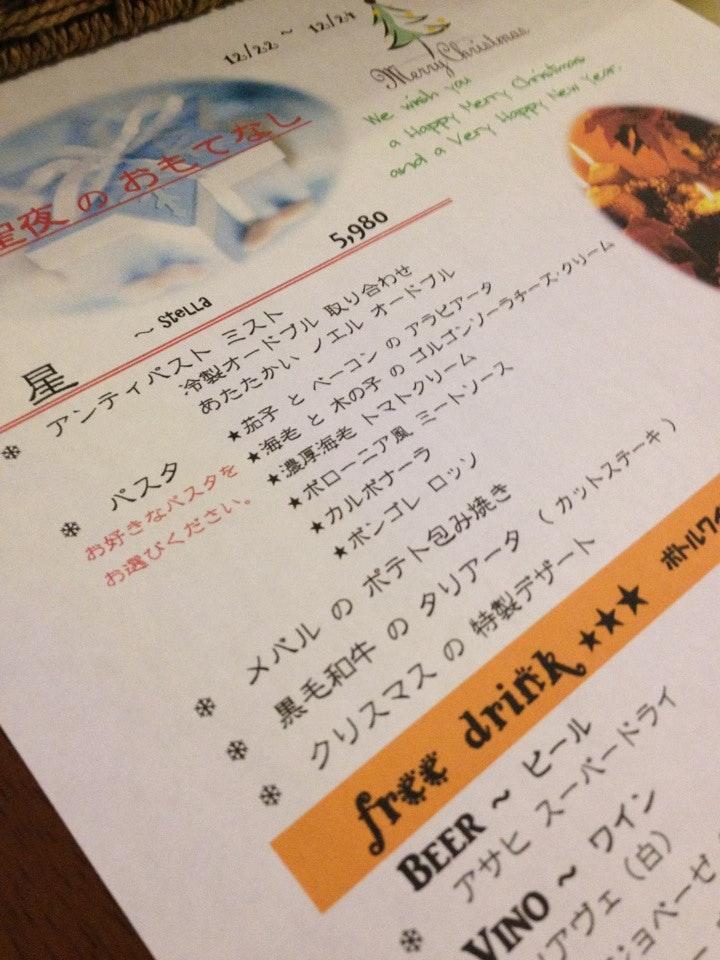 12/22 ～ 12/24
Merry Christmas
We wish you
a Happy Merry Christmas
and a Very Happy New Year.
星夜 の おもてなし
5,980
星 ～ Stella
❄ アンティパスト ミスト
冷製オードブル 取り合わせ
あたたかい ノエル オードブル
❄ パスタ
お好きなパスタを
お選びください。
★茄子 と ベーコン の アラビアータ
★海老 と 木の子 の ゴルゴンゾーラチーズ・クリーム
★濃厚海老 トマトクリーム
★ボローニア風 ミートソース
★カルボナーラ
★ボンゴレ ロッソ
❄ メバル の ポテト包み焼き
❄ 黒毛和牛 の タリアータ （ カットステーキ ）
❄ クリスマス の 特製デザート
free drink ★★★ ボトルワイ
BEER ～ ビール
アサヒ スーパードライ
❄ VINO ～ ワイン
アヴェ（白）
ジョベーゼ